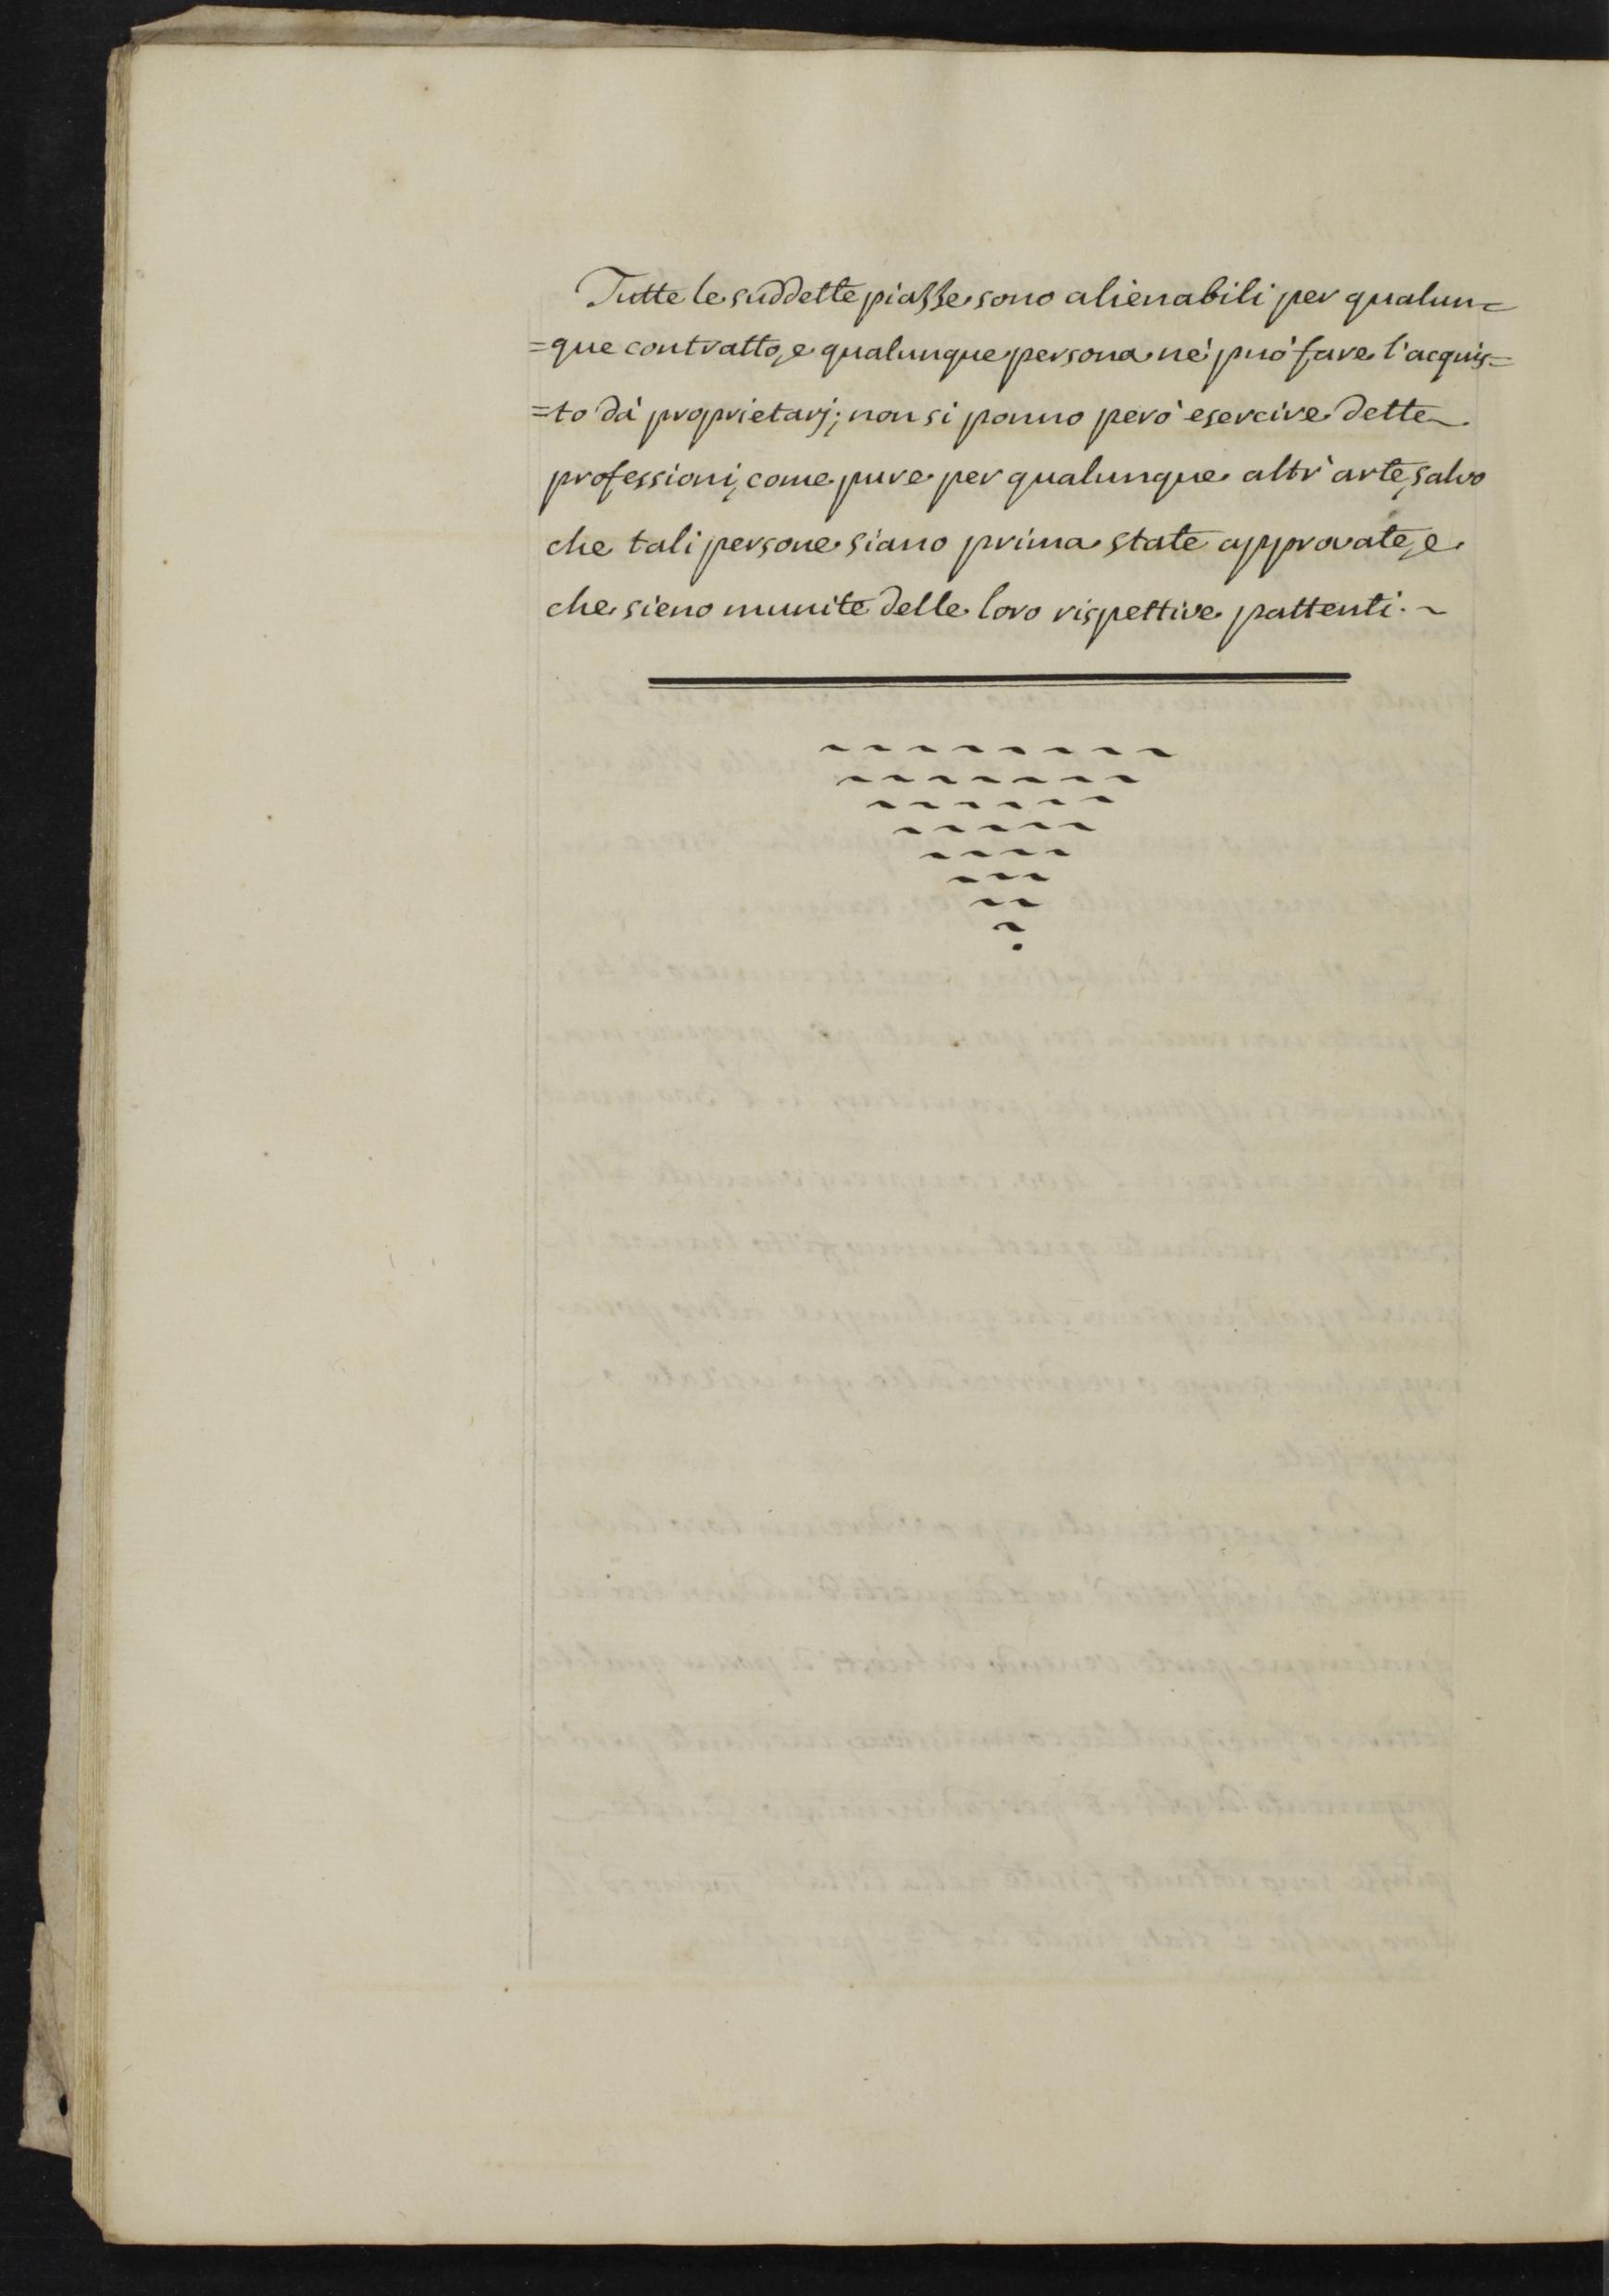 Tutte le suddette piazze sono alienabili per qualun=
=que contratto, e qualunque persona né può fare l'acquis=
=to dà proprietarj; non si ponno però esercire dette
professioni, come pure per qualunque altr'arte, salvo
che tali persone siano prima state approvate, e
che sieno munite delle loro rispettive pattenti. ~